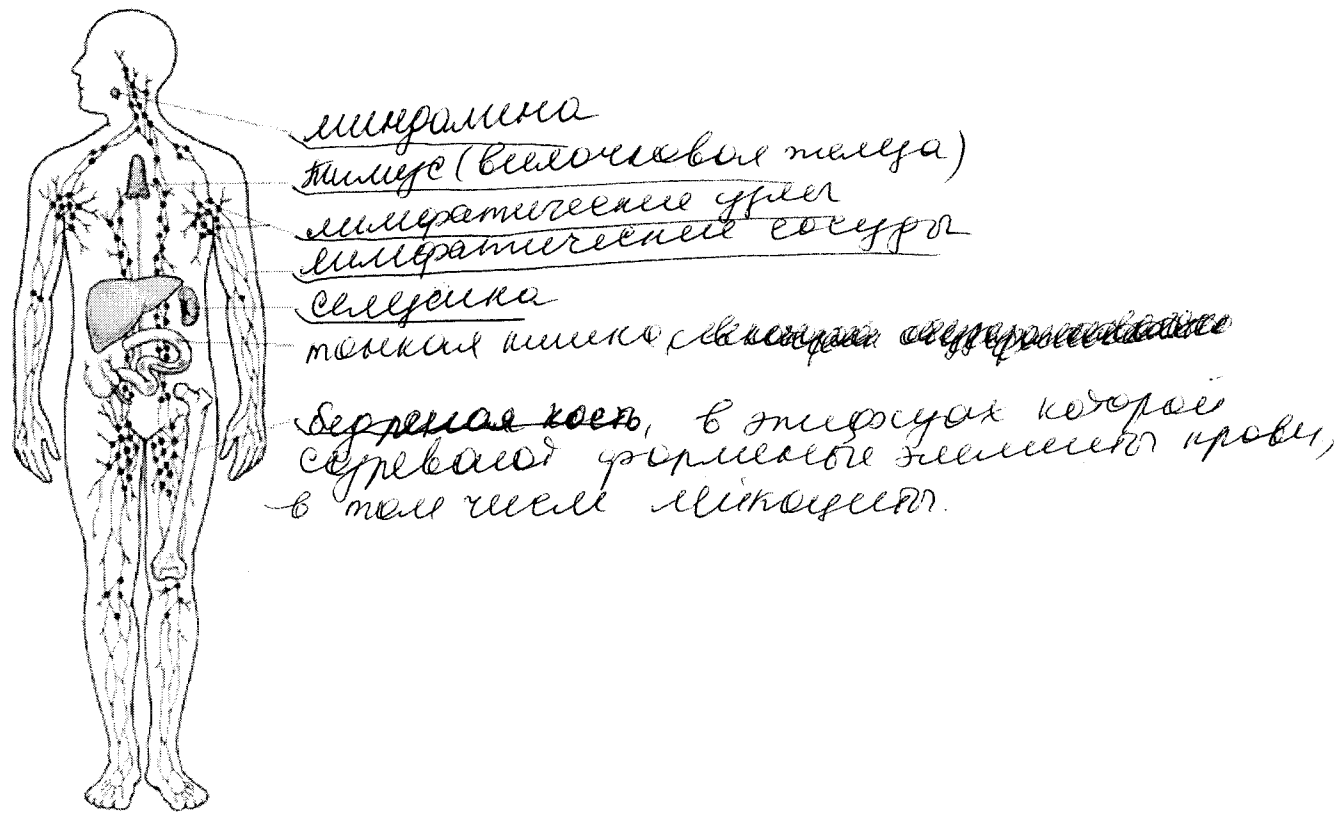 миндалина
тимус (вилочковая железа)
лимфатические узлы
лимфатические сосуды
селезёнка
тонкая кишка,
бедренная кость, в эпифизах которой
созревают форменные элементы крови,
в том числе лейкоциты.